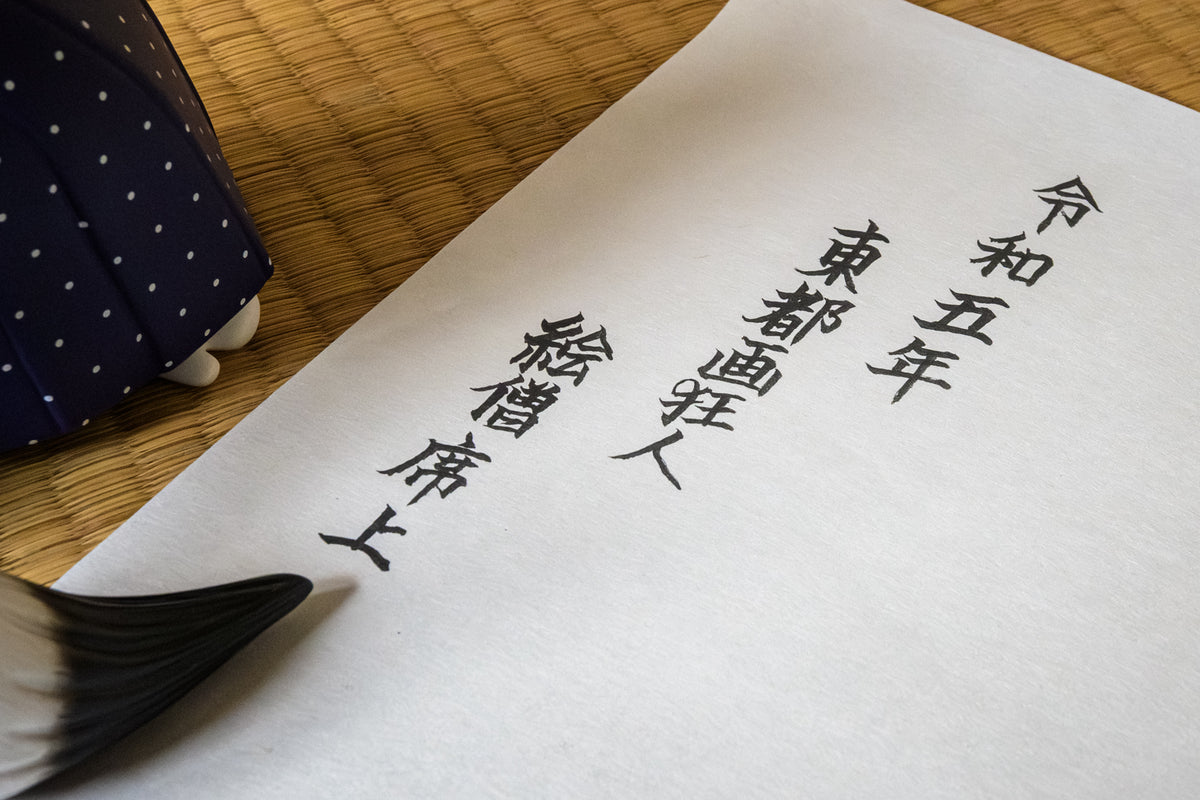 令和五年
東都画狂人
絵僧席上